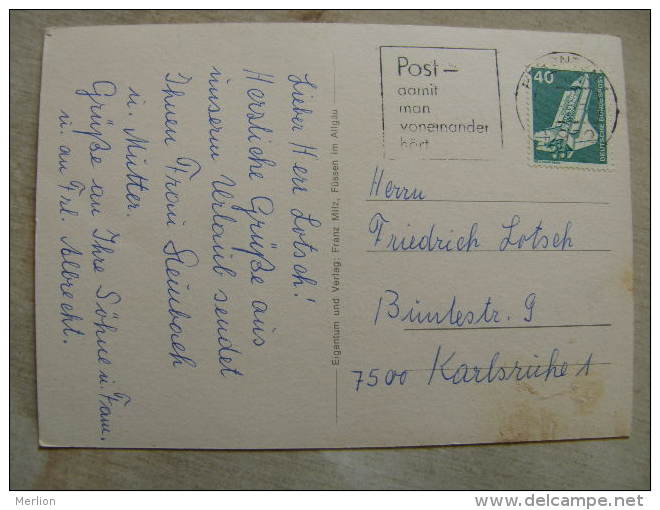 Lieber Herr Lotsch!
Herzliche Grüße aus
unserm Urlaub sendet
Ihnen Frau Steinbach
u. Mutter.
Grüße an Ihre Söhne u. Fam.
u. an Frl. Albrecht.
Eigentum und Verlag: Franz Milz, Füssen im Allgäu
Post-
damit
man
voneinander
hört
40
DEUTSCHE BUNDESPOST
Herrn
Friedrich Lotsch
9
7500 Karlsruhe 1
Merlion
delcampe.net